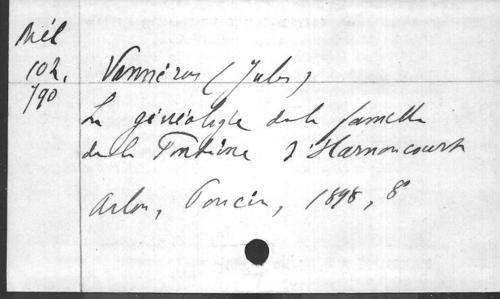 Mél
102,
790
Vannérus (Jules)
La généalogie de la famille
de la Fontaine d'Harnoncourt
Arlon, Poncin, 1898, 8°